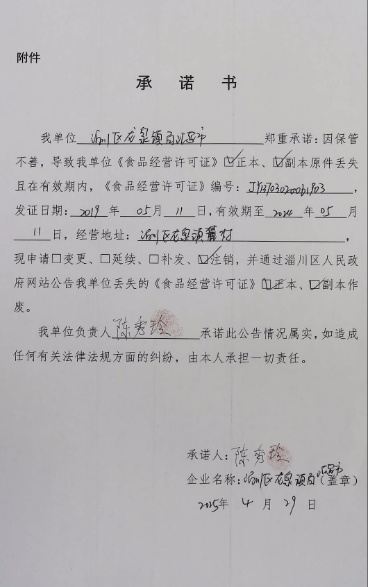 附件
承 诺 书
我单位 淄川区龙泉镇 超市 郑重承诺：因保管
不善，导致我单位《食品经营许可证》☑正本、☑副本原件丢失
且在有效期内，《食品经营许可证》编号：
发证日期：2019 年 05 月 11 日，有效期至 2024 年 05 月
11 日，经营地址：淄川区龙泉镇 村，
现申请□变更、□延续、□补发、☑注销，并通过淄川区人民政
府网站公告我单位丢失的《食品经营许可证》☑正本、☑副本作
废。
我单位负责人 陈秀玲 承诺此公告情况属实，如造成
任何有关法律法规方面的纠纷，由本人承担一切责任。
承诺人：陈秀玲
企业名称：淄川区龙泉镇 超市（盖章）
2025年 4 月 29 日